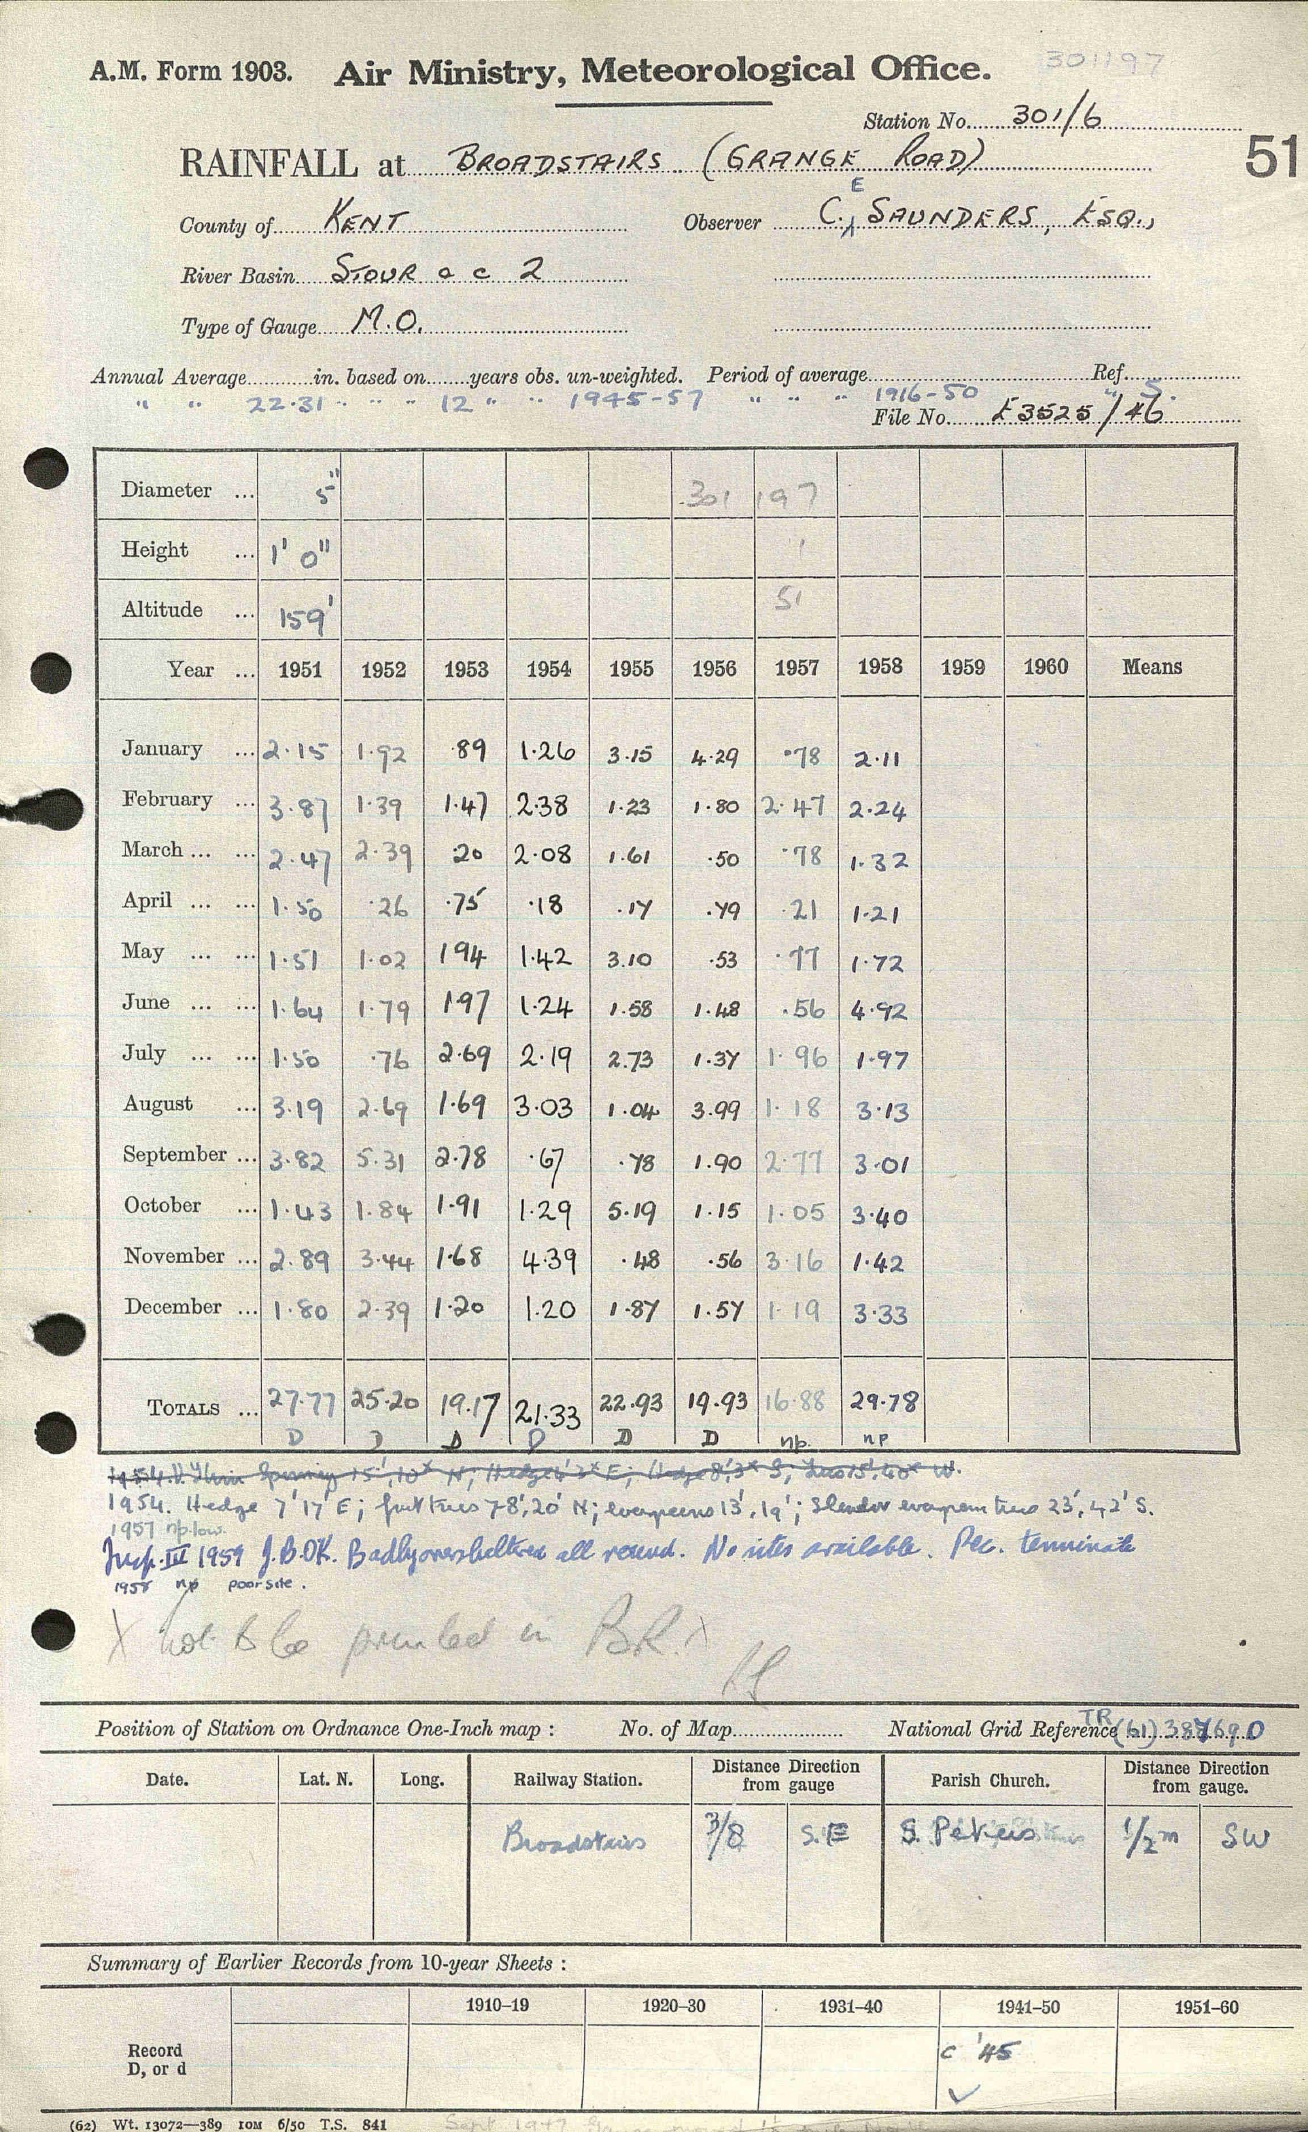 A.M. Form 1903. Air Ministry, Meteorological Office. 301197
Station No. 301/6
51
RAINFALL at BROADSTAIRS (GRANGE ROAD)
County of KENT Observer C. E SAUNDERS, ESQ.,
River Basin STOUR a c 2
Type of Gauge M.O.
Annual Average in. based on years obs. un-weighted. Period of average Ref.
" " 22.31 " " " 12 " " 1945-57 " " " 1916-50 " S.
File No. E3525/46
Diameter ... 5" 301 197
Height ... 1' 0" 1
Altitude ... 159' 51
Year ... 1951 1952 1953 1954 1955 1956 1957 1958 1959 1960 Means
January ... 2.15 1.92 .89 1.26 3.15 4.29 .78 2.11
February ... 3.87 1.39 1.47 2.38 1.23 1.80 2.47 2.24
March ... ... 2.47 2.39 .20 2.08 1.61 .50 .78 1.32
April ... ... 1.50 .26 .75 .18 .17 .79 .21 1.21
May ... ... 1.51 1.02 1.94 1.42 3.10 .53 .77 1.72
June ... ... 1.64 1.79 1.97 1.24 1.58 1.48 .56 4.92
July ... ... 1.50 .76 2.69 2.19 2.73 1.37 1.96 1.97
August ... 3.19 2.69 1.69 3.03 1.04 3.99 1.18 3.13
September ... 3.82 5.31 2.78 .67 .78 1.90 2.77 3.01
October ... 1.43 1.84 1.91 1.29 5.19 1.15 1.05 3.40
November ... 2.89 3.44 1.68 4.39 .48 .56 3.16 1.42
December ... 1.80 2.39 1.20 1.20 1.87 1.57 1.19 3.33
TOTALS ... 27.77 25.20 19.17 21.33 22.93 19.93 16.88 29.78
D D D D D D np. np
1954. Hedge 7' 17' E; fruit trees 7-8', 20' N; evergreens 13', 19'; Slender evergreen trees 23', 42' S.
1957 np low.
Insp. III 1959 J.B.OK. Badly oversheltered all round. No sites available. Rec. terminate
1958 np poor site.
X not to be printed in B.R. X
Position of Station on Ordnance One-Inch map : No. of Map National Grid Reference TR (61) 387690
Date. Lat. N. Long. Railway Station. Distance Direction from gauge Parish Church. Distance Direction from gauge.
Broadstairs 3/8 S.E S. Peters 1/2 m SW
Summary of Earlier Records from 10-year Sheets :
1910–19 1920–30 1931–40 1941–50 1951–60
Record
D, or d
c '45
✓
(62) Wt. 13072—389 10M 6/50 T.S. 841 Sept 1947